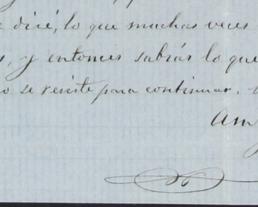 dicé, lo que muchas veces
y entonces sabrás lo que
se resiste para continuar.
Am